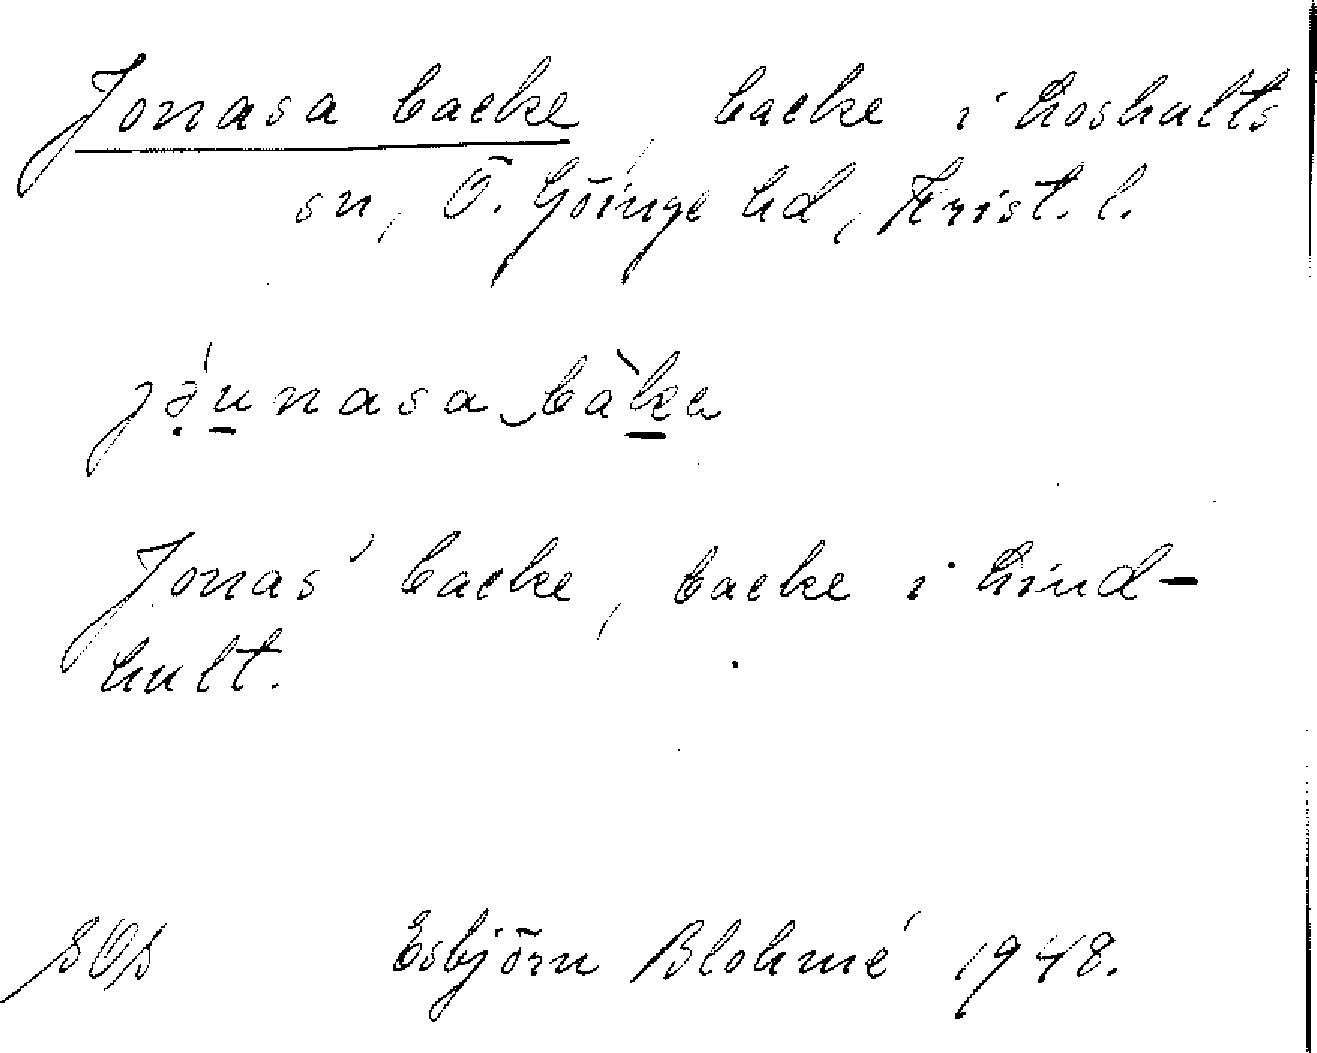 Jonasa backe, backe i Loshults
sn, Ö. Göinge hd, Krist. l.
jə̣́u̲nasa‿bàk̲a
Jonas' backe, backe i Lind-
hult.
SOS Esbjörn Blohmé 1948.